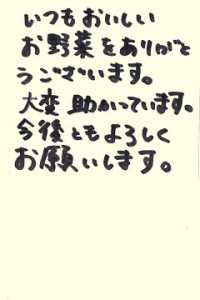 いつもおいしい
お野菜をありがと
うございます。
大変 助かっています。
今後ともよろしく
お願いします。